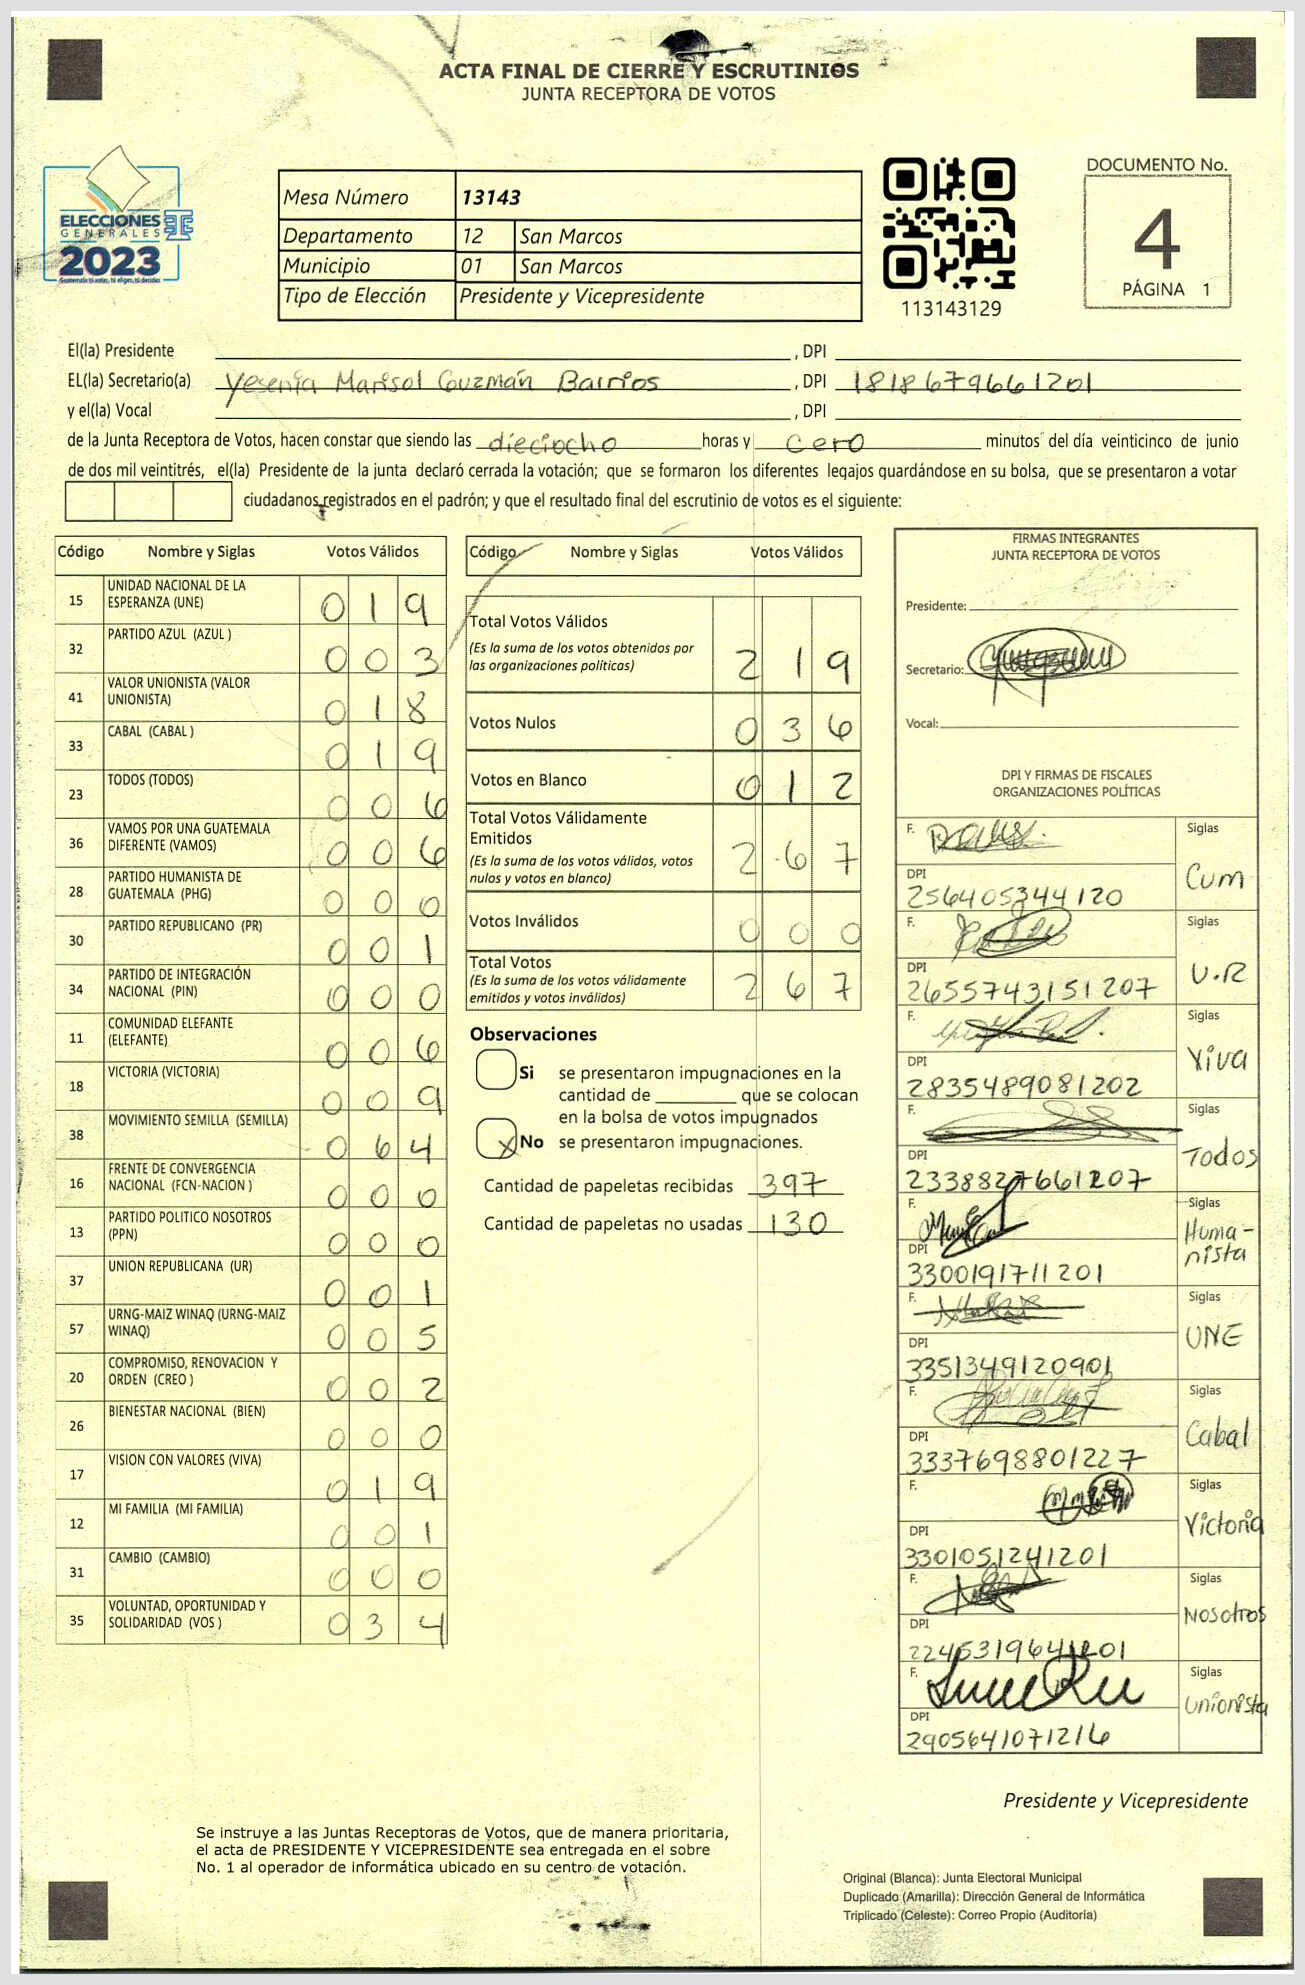 ACTA FINAL DE CIERRE Y ESCRUTINIOS
JUNTA RECEPTORA DE VOTOS
ELECCIONES
GENERALES
2023
Mesa Número 13143
Departamento 12 San Marcos
Municipio 01 San Marcos
Tipo de Elección Presidente y Vicepresidente
113143129
DOCUMENTO No.
4
PÁGINA 1
El(la) Presidente , DPI
EL(la) Secretario(a) Yesenia Marisol Guzmán Barrios , DPI 1818679661201
y el(la) Vocal , DPI
de la Junta Receptora de Votos, hacen constar que siendo las dieciocho horas y cero minutos del día veinticinco de junio
de dos mil veintitrés, el(la) Presidente de la junta declaró cerrada la votación; que se formaron los diferentes legajos guardándose en su bolsa, que se presentaron a votar
ciudadanos registrados en el padrón; y que el resultado final del escrutinio de votos es el siguiente:
Código Nombre y Siglas Votos Válidos
15 UNIDAD NACIONAL DE LA ESPERANZA (UNE) 0 1 9
32 PARTIDO AZUL (AZUL ) 0 0 3
41 VALOR UNIONISTA (VALOR UNIONISTA) 0 1 8
33 CABAL (CABAL ) 0 1 9
23 TODOS (TODOS) 0 0 6
36 VAMOS POR UNA GUATEMALA DIFERENTE (VAMOS) 0 0 6
28 PARTIDO HUMANISTA DE GUATEMALA (PHG) 0 0 0
30 PARTIDO REPUBLICANO (PR) 0 0 1
34 PARTIDO DE INTEGRACIÓN NACIONAL (PIN) 0 0 0
11 COMUNIDAD ELEFANTE (ELEFANTE) 0 0 6
18 VICTORIA (VICTORIA) 0 0 9
38 MOVIMIENTO SEMILLA (SEMILLA) 0 6 4
16 FRENTE DE CONVERGENCIA NACIONAL (FCN-NACION ) 0 0 0
13 PARTIDO POLITICO NOSOTROS (PPN) 0 0 0
37 UNION REPUBLICANA (UR) 0 0 1
57 URNG-MAIZ WINAQ (URNG-MAIZ WINAQ) 0 0 5
20 COMPROMISO, RENOVACION Y ORDEN (CREO ) 0 0 2
26 BIENESTAR NACIONAL (BIEN) 0 0 0
17 VISION CON VALORES (VIVA) 0 1 9
12 MI FAMILIA (MI FAMILIA) 0 0 1
31 CAMBIO (CAMBIO) 0 0 0
35 VOLUNTAD, OPORTUNIDAD Y SOLIDARIDAD (VOS ) 0 3 4
Código Nombre y Siglas Votos Válidos
Total Votos Válidos 2 1 9
(Es la suma de los votos obtenidos por
las organizaciones políticas)
Votos Nulos 0 3 6
Votos en Blanco 0 1 2
Total Votos Válidamente
Emitidos 2 6 7
(Es la suma de los votos válidos, votos
nulos y votos en blanco)
Votos Inválidos 0 0 0
Total Votos 2 6 7
(Es la suma de los votos válidamente
emitidos y votos inválidos)
Observaciones
Si se presentaron impugnaciones en la
cantidad de ________ que se colocan
en la bolsa de votos impugnados
X No se presentaron impugnaciones.
Cantidad de papeletas recibidas 397
Cantidad de papeletas no usadas 130
FIRMAS INTEGRANTES
JUNTA RECEPTORA DE VOTOS
Presidente:
Secretario:
Vocal:
DPI Y FIRMAS DE FISCALES
ORGANIZACIONES POLÍTICAS
F. Siglas
Cum
DPI
256405344120
F. Siglas
U.R
DPI
2655743151207
F. Siglas
Viva
DPI
2835489081202
F. Siglas
Todos
DPI
2338827661207
F. Siglas
Huma-
nista
DPI
3300191711201
F. Siglas
UNE
DPI
3351349120901
F. Siglas
Cabal
DPI
3337698801227
F. Siglas
Victoria
DPI
3301051241201
F. Siglas
Nosotros
DPI
F. Siglas
Unionista
DPI
2905641071216
Presidente y Vicepresidente
Se instruye a las Juntas Receptoras de Votos, que de manera prioritaria,
el acta de PRESIDENTE Y VICEPRESIDENTE sea entregada en el sobre
No. 1 al operador de informática ubicado en su centro de votación.
Original (Blanca): Junta Electoral Municipal
Duplicado (Amarilla): Dirección General de Informática
Triplicado (Celeste): Correo Propio (Auditoría)